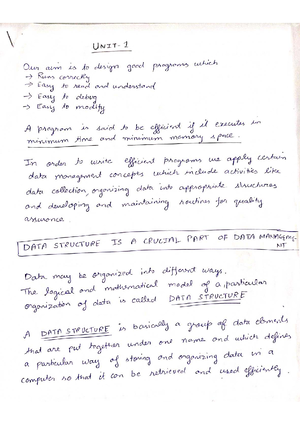 UNIT-1
Our aim is to design good programs which
→ Runs correctly
→ Easy to read and understand
→ Easy to debug
→ Easy to modify
A program is said to be efficient if it executes in
minimum time and minimum memory space.
In order to write efficient programs we apply certain
data management concepts which include activities like
data collection, organizing data into appropriate structures
and developing and maintaining routines for quality
assurance.
DATA STRUCTURE IS A CRUCIAL PART OF DATA MANAGEME-
NT
Data may be organized into different ways.
The logical and mathematical model of a particular
organization of data is called DATA STRUCTURE
A DATA STRUCTURE is basically a group of data elements
that are put together under one name and which defines
a particular way of storing and organizing data in a
computer so that it can be retrieved and used efficiently.